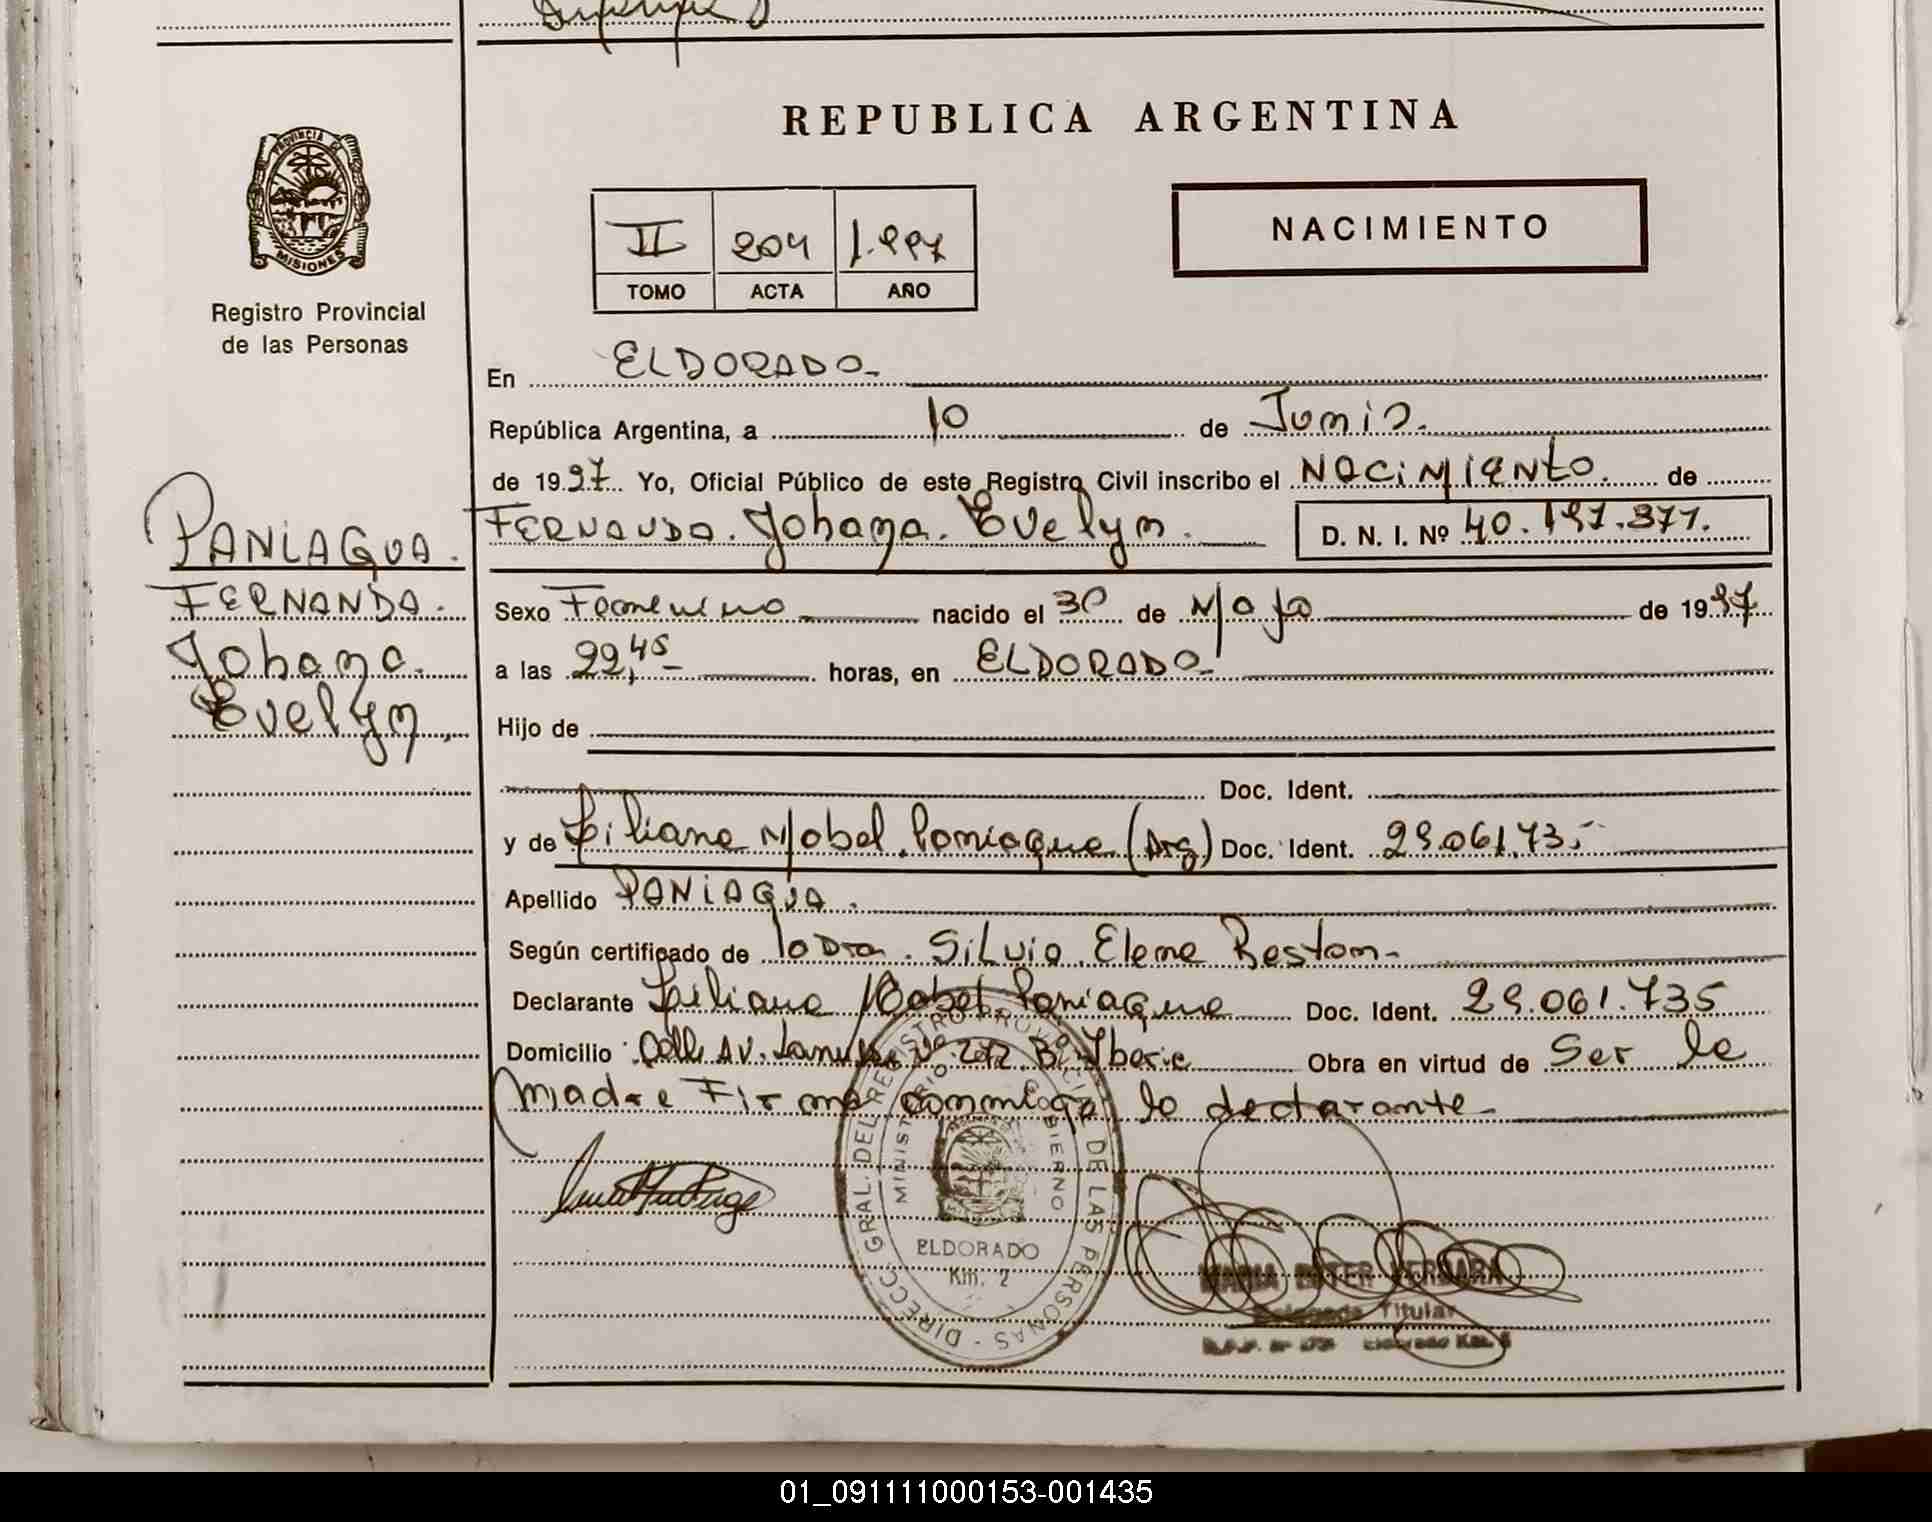 REPUBLICA ARGENTINA
PROVINCIA DE
MISIONES
Registro Provincial
de las Personas
II 204 1.997
TOMO ACTA AÑO
NACIMIENTO
En ELDORADO.
República Argentina, a 10 de Junio.
de 1997 Yo, Oficial Público de este Registro Civil inscribo el NACIMIENTO. de
FERNANDA. Johana. Evelyn. D. N. I. Nº 40.197.371.
PANIAGUA.
FERNANDA.
Johana.
Evelyn.
Sexo Femenino nacido el 30 de Mayo de 1997
a las 22,45 horas, en ELDORADO
Hijo de
Doc. Ident.
y de Liliana Mabel. Paniagua (Arg) Doc. Ident. 29.061.735
Apellido PANIAGUA.
Según certificado de la Dra. Silvia. Elena Reston
Declarante Liliana Mabel. Paniagua Doc. Ident. 29.061.735
Domicilio Calle AV. Nº 272 Bº Obra en virtud de Ser la
madre Firma conmigo la declarante
DIRECC. GRAL. DEL REGISTRO PROVINCIAL DE LAS PERSONAS
MINISTERIO DE GOBIERNO
ELDORADO
Km. 2
MARIA ESTER VERGARA
Delegada Titular
Eldorado Km.
01_091111000153-001435